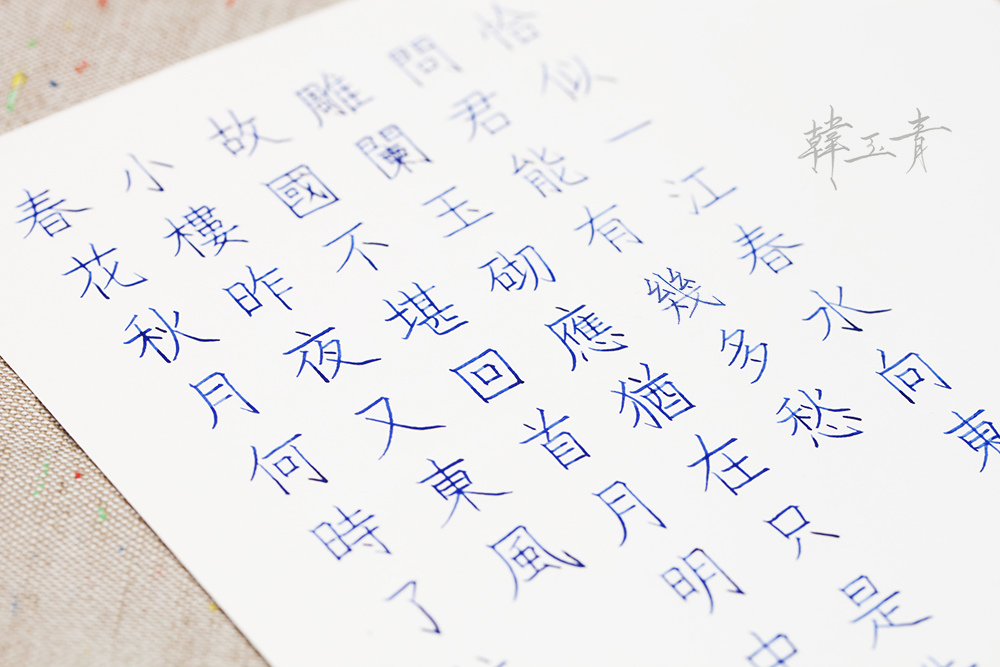 春花秋月何時了
小樓昨夜又東風
故國不堪回首月明中
雕闌玉砌應猶在只是
問君能有幾多愁
恰似一江春水向東
韓玉青